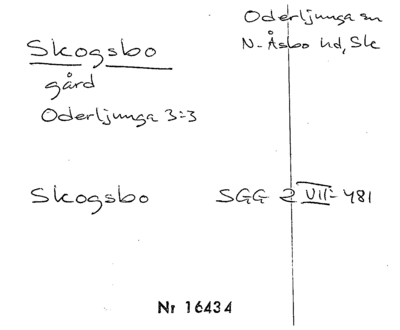 Oderljunga sn
N-Åsbo hd, Sk
Skogsbo
gård
Oderljunga 3=3
Skogsbo SGG 2 VII = 481
Nr 16434